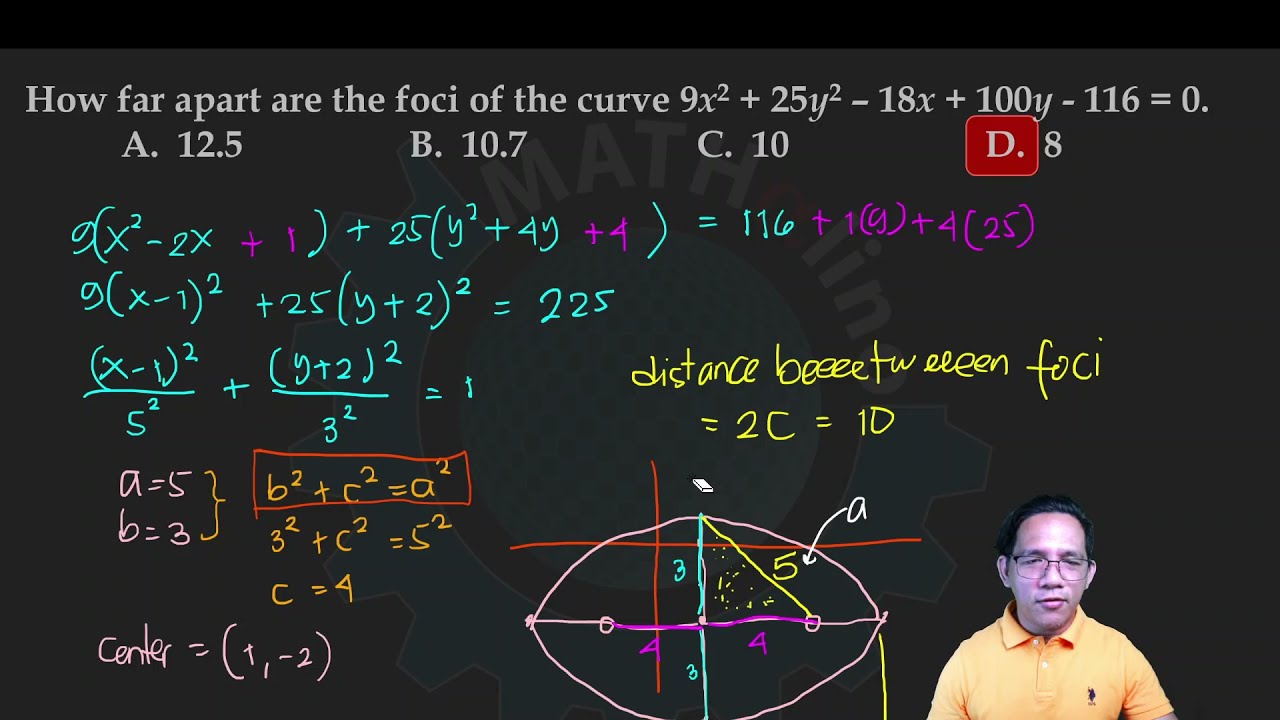 How far apart are the foci of the curve 9x² + 25y² – 18x + 100y - 116 = 0.
A. 12.5 B. 10.7 C. 10 D. 8
MATHonline
9(x² - 2x + 1) + 25(y² + 4y + 4) = 116 + 1(9) + 4(25)
9(x-1)² + 25(y+2)² = 225
(x-1)²/5² + (y+2)²/3² = 1
distance beeeetweeeen foci
= 2C = 10
a = 5
b² + c² = a²
b = 3
3² + c² = 5²
c = 4
center = (1, -2)
a
3
5
4
4
3